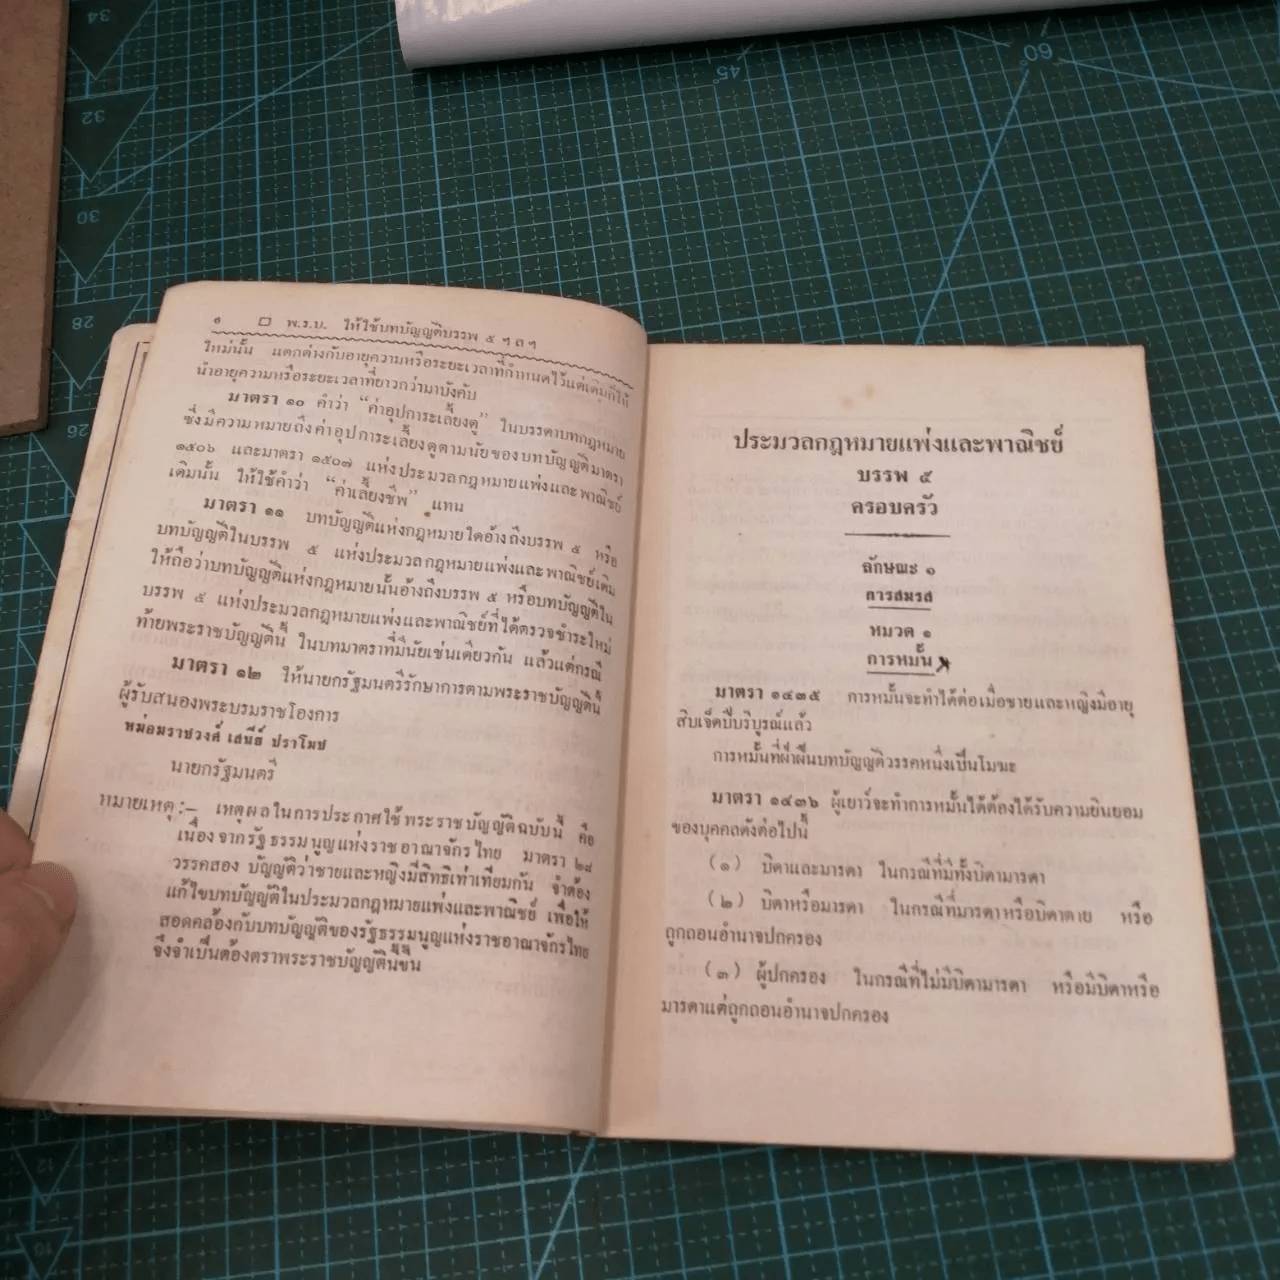 ๑ □ พ.ร.บ. ให้ใช้บทบัญญัติบรรพ ๕ ฯ ล ฯ
ใหม่นั้น แตกต่างกับอายุความหรือระยะเวลาที่กำหนดไว้แต่เดิมก็ให้
นำอายุความหรือระยะเวลาที่ยาวกว่ามาบังคับ
มาตรา ๑๐ คำว่า “ค่าอุปการะเลี้ยงดู” ในบรรดาบทกฎหมาย
ซึ่งมีความหมายถึงค่าอุปการะเลี้ยงดูตามนัยของบทบัญญัติมาตรา
๑๕๐๖ และมาตรา ๑๕๐๗ แห่งประมวลกฎหมายแพ่งและพาณิชย์
เดิมนั้น ให้ใช้คำว่า “ค่าเลี้ยงชีพ” แทน
มาตรา ๑๑ บทบัญญัติแห่งกฎหมายใดอ้างถึงบรรพ ๕ หรือ
บทบัญญัติในบรรพ ๕ แห่งประมวลกฎหมายแพ่งและพาณิชย์เดิม
ให้ถือว่าบทบัญญัติแห่งกฎหมายนั้นอ้างถึงบรรพ ๕ หรือบทบัญญัติใน
บรรพ ๕ แห่งประมวลกฎหมายแพ่งและพาณิชย์ที่ได้ตรวจชำระใหม่
ท้ายพระราชบัญญัตินี้ ในบทมาตราที่มีนัยเช่นเดียวกัน แล้วแต่กรณี
มาตรา ๑๒ ให้นายกรัฐมนตรีรักษาการตามพระราชบัญญัตินี้
ผู้รับสนองพระบรมราชโองการ
หม่อมราชวงศ์ เสนีย์ ปราโมช
นายกรัฐมนตรี
หมายเหตุ :— เหตุผลในการประกาศใช้พระราชบัญญัติฉบับนี้ คือ
เนื่องจากรัฐธรรมนูญแห่งราชอาณาจักรไทย มาตรา ๒๘
วรรคสอง บัญญัติว่าชายและหญิงมีสิทธิเท่าเทียมกัน จำต้อง
แก้ไขบทบัญญัติในประมวลกฎหมายแพ่งและพาณิชย์ เพื่อให้
สอดคล้องกับบทบัญญัติของรัฐธรรมนูญแห่งราชอาณาจักรไทย
จึงจำเป็นต้องตราพระราชบัญญัตินี้ขึ้น
ประมวลกฎหมายแพ่งและพาณิชย์
บรรพ ๕
ครอบครัว
ลักษณะ ๑
การสมรส
หมวด ๑
การหมั้น
มาตรา ๑๔๓๕ การหมั้นจะทำได้ต่อเมื่อชายและหญิงมีอายุ
สิบเจ็ดปีบริบูรณ์แล้ว
การหมั้นที่ฝ่าฝืนบทบัญญัติวรรคหนึ่งเป็นโมฆะ
มาตรา ๑๔๓๖ ผู้เยาว์จะทำการหมั้นได้ต้องได้รับความยินยอม
ของบุคคลดังต่อไปนี้
(๑) บิดาและมารดา ในกรณีที่มีทั้งบิดามารดา
(๒) บิดาหรือมารดา ในกรณีที่มารดาหรือบิดาตาย หรือ
ถูกถอนอำนาจปกครอง
(๓) ผู้ปกครอง ในกรณีที่ไม่มีบิดามารดา หรือมีบิดาหรือ
มารดาแต่ถูกถอนอำนาจปกครอง
34
32
30
28
26
45°
60°
12
10